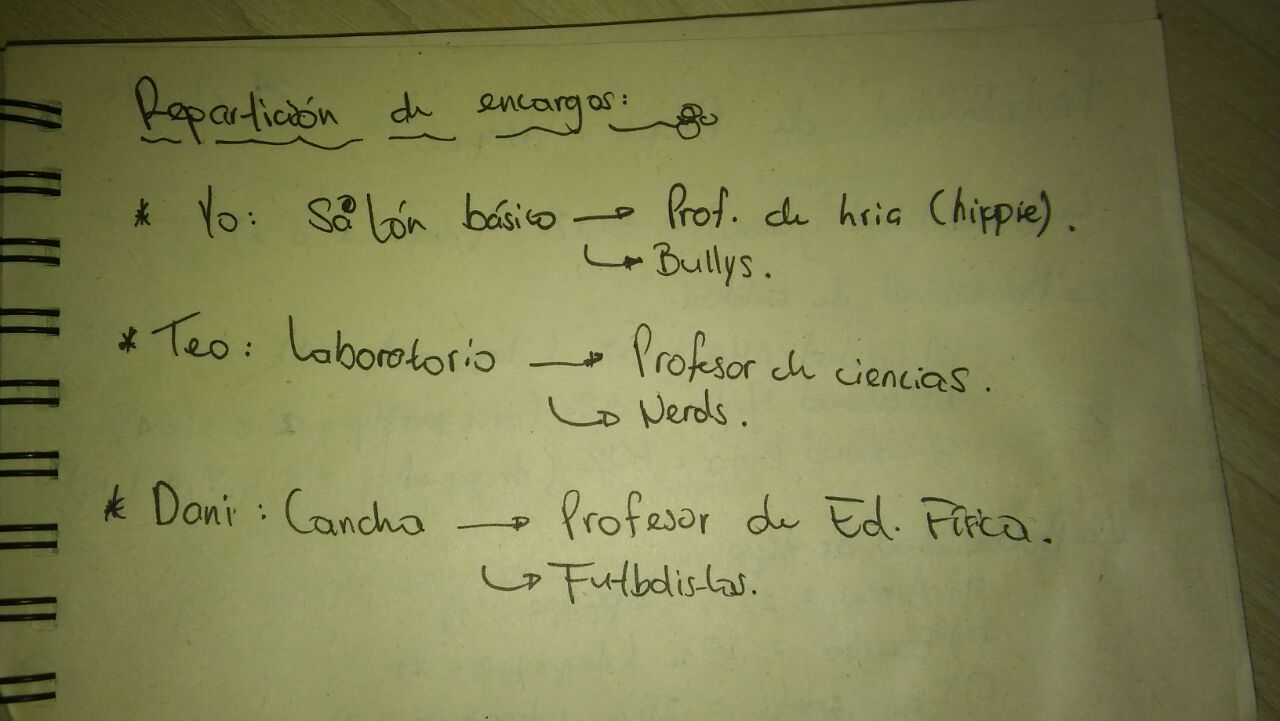 Repartición de encargos:
* Yo: Salón básico → Prof. de hria (hippie).
↳ Bullys.
* Teo: Laboratorio → Profesor de ciencias.
↳ Nerds.
* Dani: Cancha → Profesor de Ed. Física.
↳ Futbolistas.